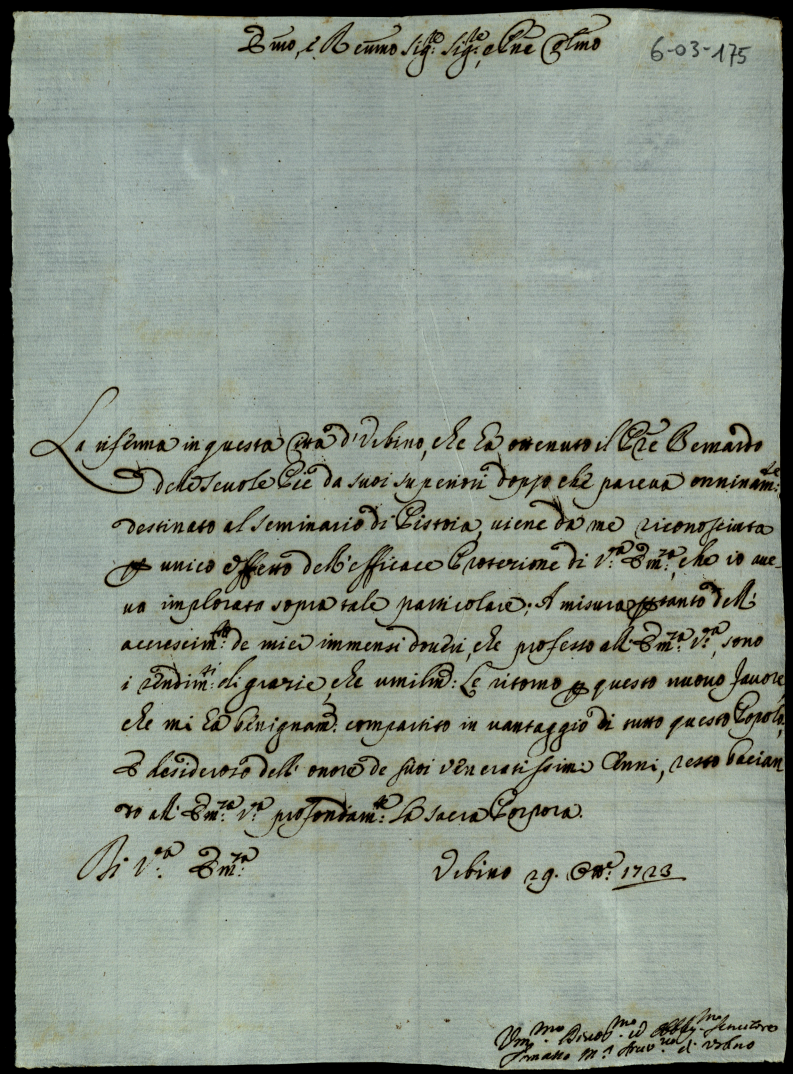 Emo, e Rmo Sig.re Sig.re, e Prne Colmo
6-03-175
La rifferma in questa Città d'Urbino, che hà ottenuto il Pre Bernardo
delle Scuole Pie da suoi superiori doppo che pareva onninam.te
destinato al seminario di Pistoia, viene da me riconosciuta
per unico effetto dell'efficace Protezione di V.ra Em.za, che io ave-
va implorata sopra tale particolare; A misura pertanto dell'
accrescim.to de miei immensi doveri, che professo all'Em.za V.ra, sono
i rendim.ti di grazie, che umilm.e Le ritorno per questo nuovo favore,
che mi hà benignam.e compartito in vantaggio di tutto questo Popolo,
E desideroso dell'onore de suoi veneratissimi Cenni, resto bacian
do all'Em.za V.ra profondam.te La sacra Porpora.
Di V.ra Em.za
Urbino 29. Ott.e 1723
Um.mo Divot.mo ed Obblig.mo Servitore
Tomaso M.a Arciv.vo d'Urbino